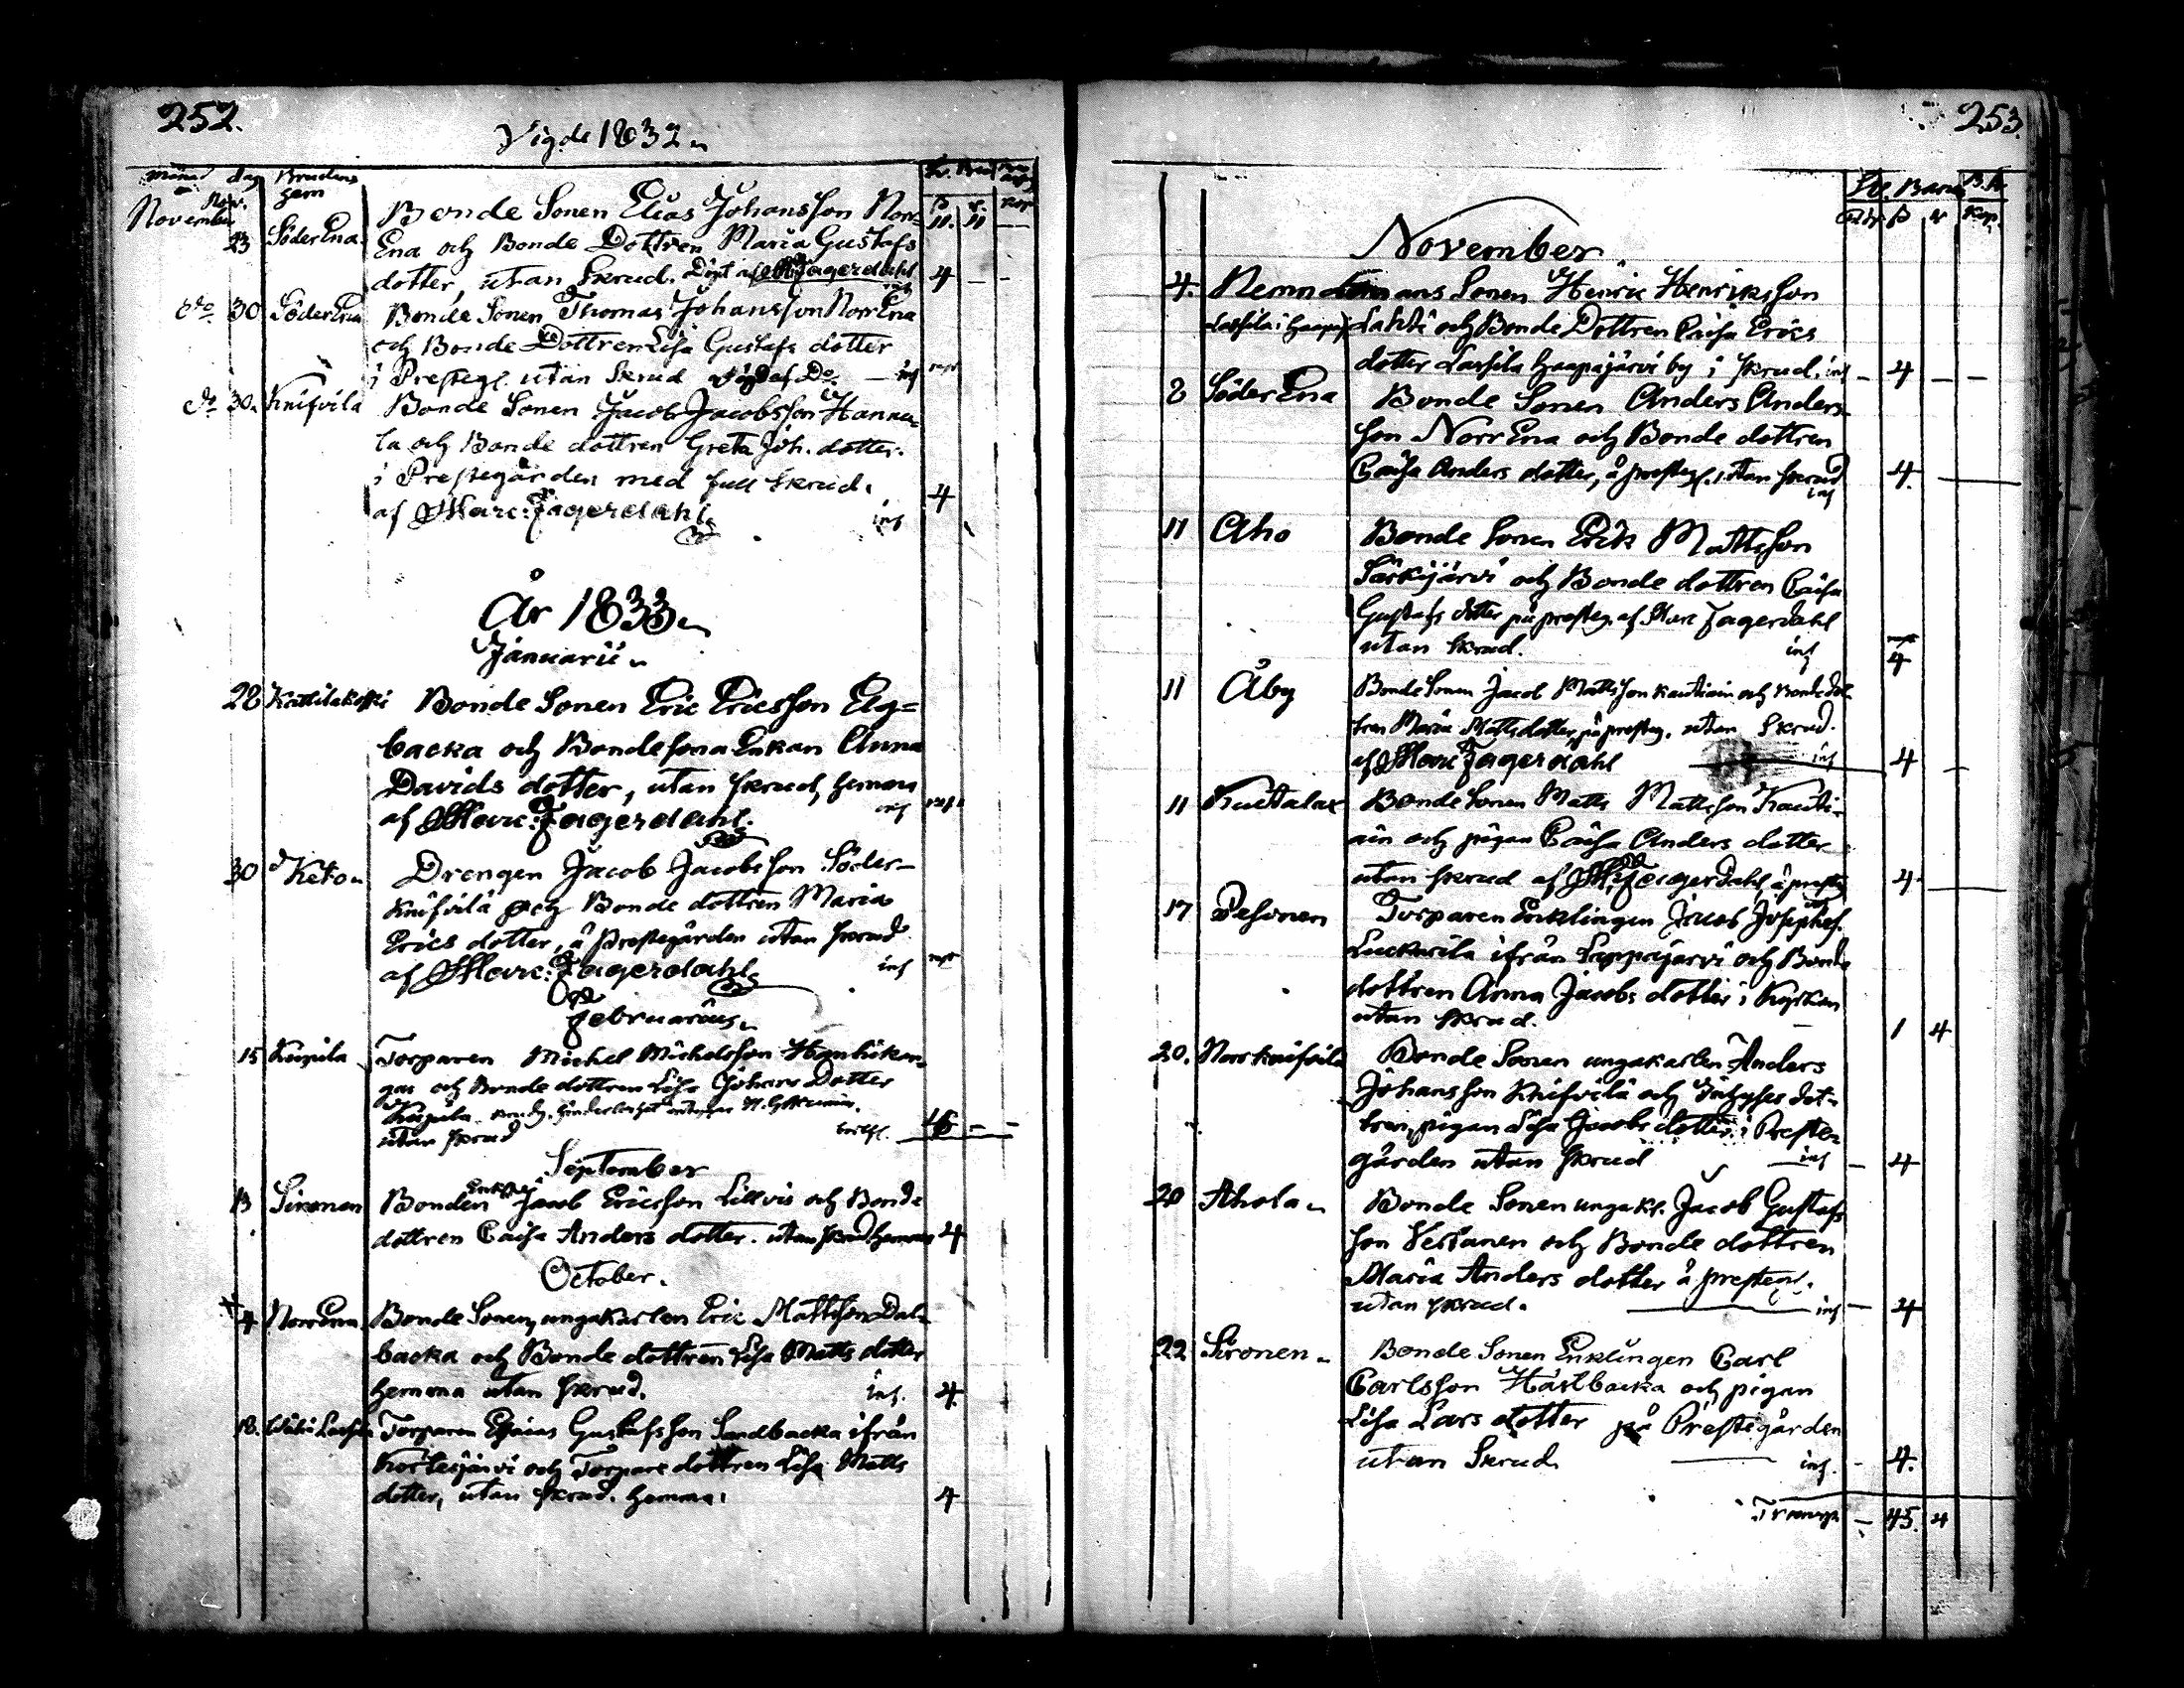 252.
Vigde 1832
månad dag Brudens hem
Nov.
November 23 SöderEna Bonde Sonen Elias Johansson Norr=
Ena och Bonde Dottren Maria Gustafs
dotter, utan Skrud. Fagerdahl 4
do 30 SöderEna Bonde Sonen Thomas Johansson NorrEna
och Bonde Dottren Lisa Gustafs dotter
i Presteg. utan Skrud af Do. inf
do 30. Knifvila Bonde Sonen Jacob Jacobsson Hannu-
la och Bonde dottren Greta Joh. dotter.
i Prestegården med full skrud.
af Marc: Fagerdahl. inf 4
År 1833
Januarii
28 Kattilakoski Bonde Sonen Eric Ericsson Elg=
backa och Bondesona Enkan Anna
Davids dotter, utan skrud, hemma
af Marc: Fagerdahl. inf
30 Keto Drengen Jacob Jacobsson Söder-
Knifvilä och Bonde dottren Maria
Erics dotter, å Prestegården utan skrud
af Marc: Fagerdahl inf
Februarius
15 Torparen Michel Michelsson
och Bonde dottren Lisa Johans Dotter
utan skrud
September
13 Sironen Bonden Enkl. Jacob Ericsson Lillvis och Bonde
dottren Caisa Anders dotter. utan skrud hemma 4
October.
4 NorrEna Bonde Sonen, ungakarlen Eric Mattsson Dal-
backa och Bonde dottren Lisa Matts dotter
hemma utan skrud. inf. 4
18. Torparen Esaias Gustafsson Sandbacka ifrån
Kortesjärvi och Torpare dottren Lisa Matts
dotter, utan skrud. hemma. 4
253.
November
4. Nemndemans Sonen Henric Henriksson
Lassila i Haapaj. Lahti och Bonde Dottren Caisa Erics
dotter Lassila Haapajärvi by i skrud. inf 4
8 SöderEna Bonde Sonen Anders Anders-
son NorrEna och Bonde dottren
Caisa Anders dotter, å presteg. utan skrud inf 4.
11 Aho Bonde Sonen Erik Mattsson
Särkijärvi och Bonde dottren Caisa
Gustafs dotter på presteg. af Marc Fagerdahl
utan skrud. inf 4
11 Åby Bonde Sonen Jacob Mattsson Kautiain och Bonde dot-
tren Maria Mattsdotter, på presteg. utan skrud.
af Marc Fagerdahl inf 4
11 Bonde Sonen Matts Mattsson Kauti-
ain och pigan Caisa Anders dotter
utan skrud af Fagerdahl å presteg. 4
17 Pesonen Torparen Enklingen Jacob Josephs.
ifrån Lappajärvi och Bonde
dottren Anna Jacobs dotter i Kyrkan
utan skrud. 1 4
20. Norrknifvila Bonde Sonen ungakarlen Anders
Johansson Knifvilä och Inhyses dot-
tren, pigan Lisa Jacobs dotter i Preste-
gården utan skrud inf 4
20 Ahola Bonde Sonen ungak. Jacob Gustafs
son Vertanen och Bonde dottren
Maria Anders dotter å presteg.
utan skrud. inf 4
22 Sironen Bonde Sonen Enklingen Carl
Carlsson Hästbacka och pigan
Lisa Lars dotter på Prestegården
utan Skrud inf. 4.
Transp. 45. 4